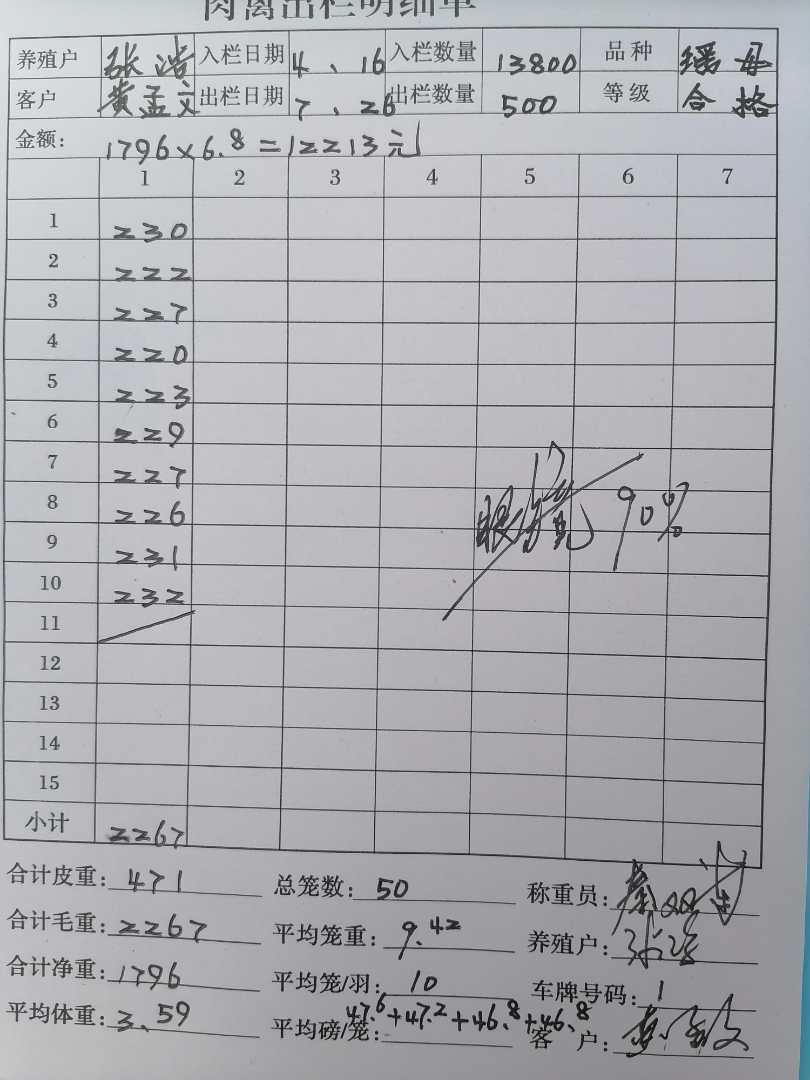 肉禽出栏明细单
养殖户 张浩 入栏日期 4、16 入栏数量 13800 品种 瑶母
客户 黄孟文 出栏日期 7、26 出栏数量 500 等级 合格
金额: 1796×6.8=12213元
1 2 3 4 5 6 7
1 230
2 222
3 227
4 220
5 223
6 229
7 227
8 226
9 231
10 232
11
12
13
14
15
90%
小计 2267
合计皮重: 471 总笼数: 50 称重员:
合计毛重: 2267 平均笼重: 9.42 养殖户: 张浩
合计净重: 1796 平均笼/羽: 10 车牌号码: 1
平均体重: 3、59 平均磅/笼: 47.6+47.2+46.8+46.8 客户: